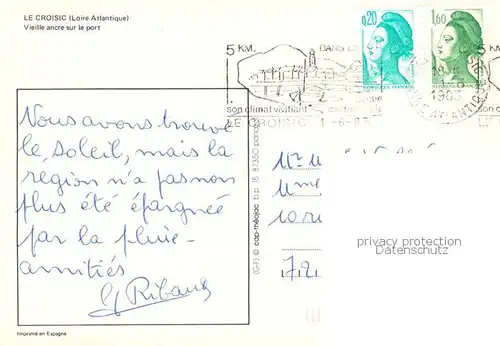 LE CROISIC (Loire Atlantique)
Vieille ancre sur le port
0,20
1,60
5 KM.
DANS
5 KM
1983
son climat vivifiant
son c
LE CROISIC 1-6-83
LE CR
Nous avons trouvé
le soleil, mais la
région n'a pas non
plus été épargnée
par la pluie-
amitiés
G Ribaud
(G-F) © cap-théojac b.p. 15 87350 panazol
Mr
Mme
10 r
72
privacy protection
Datenschutz
Imprimé en Espagne